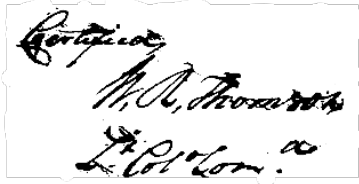 Certified,
W. R. Thomson
Lt. Col. Com.